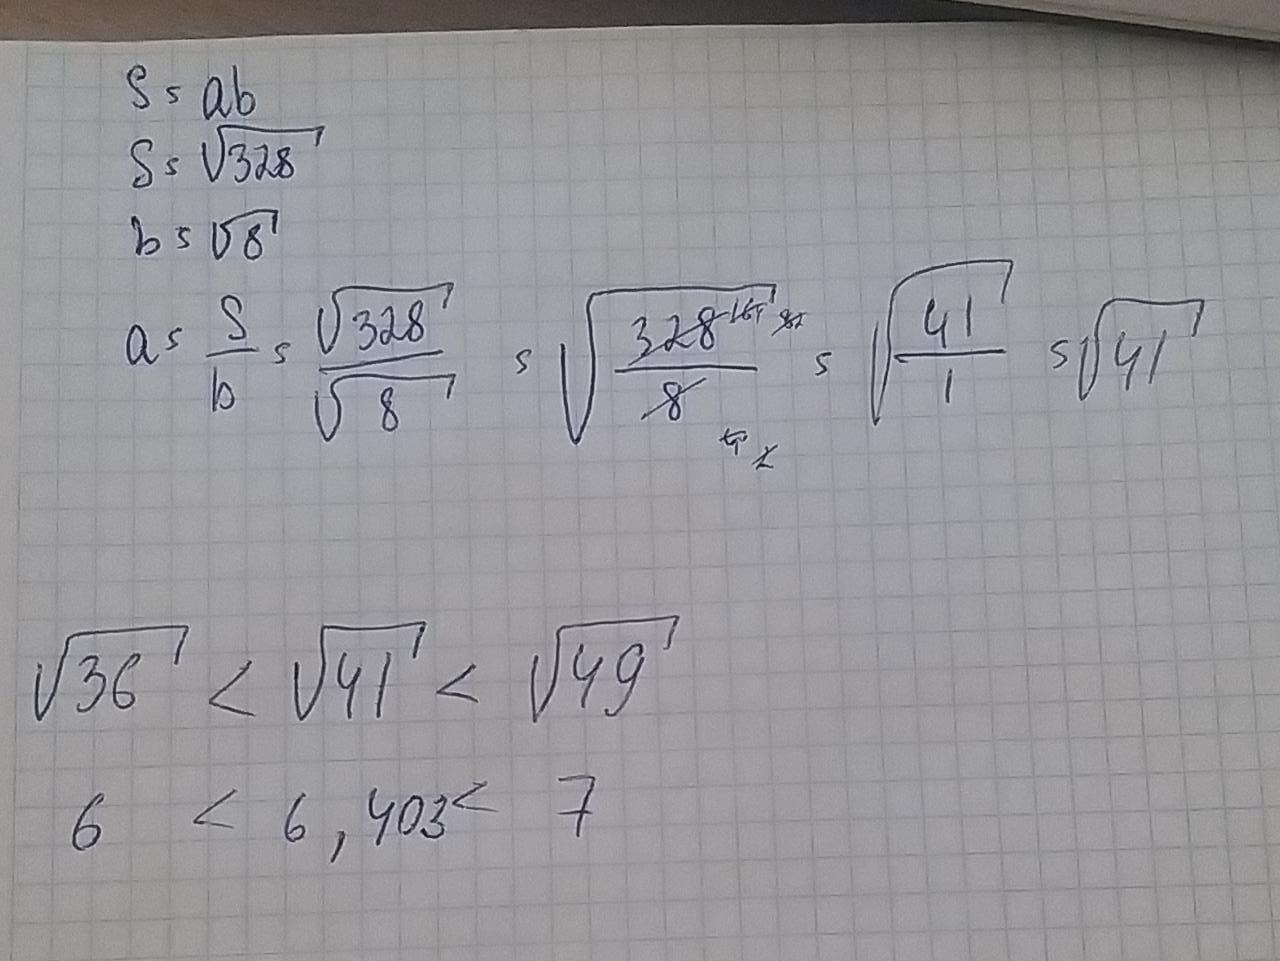 S = ab
S = √328
b = √8
a = S/b = √328/√8 = √(328/8) = √(41/1) = √41
√36 < √41 < √49
6 < 6,403 < 7